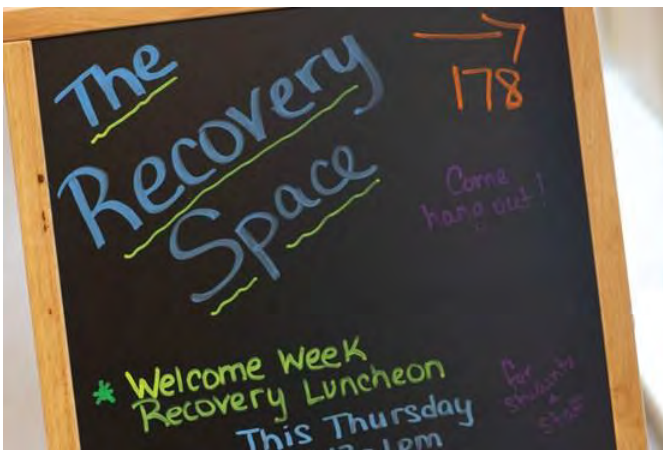 The
Recovery
Space
178
Come
hang out!
* Welcome Week
Recovery Luncheon
This Thursday
for
students
&
staff